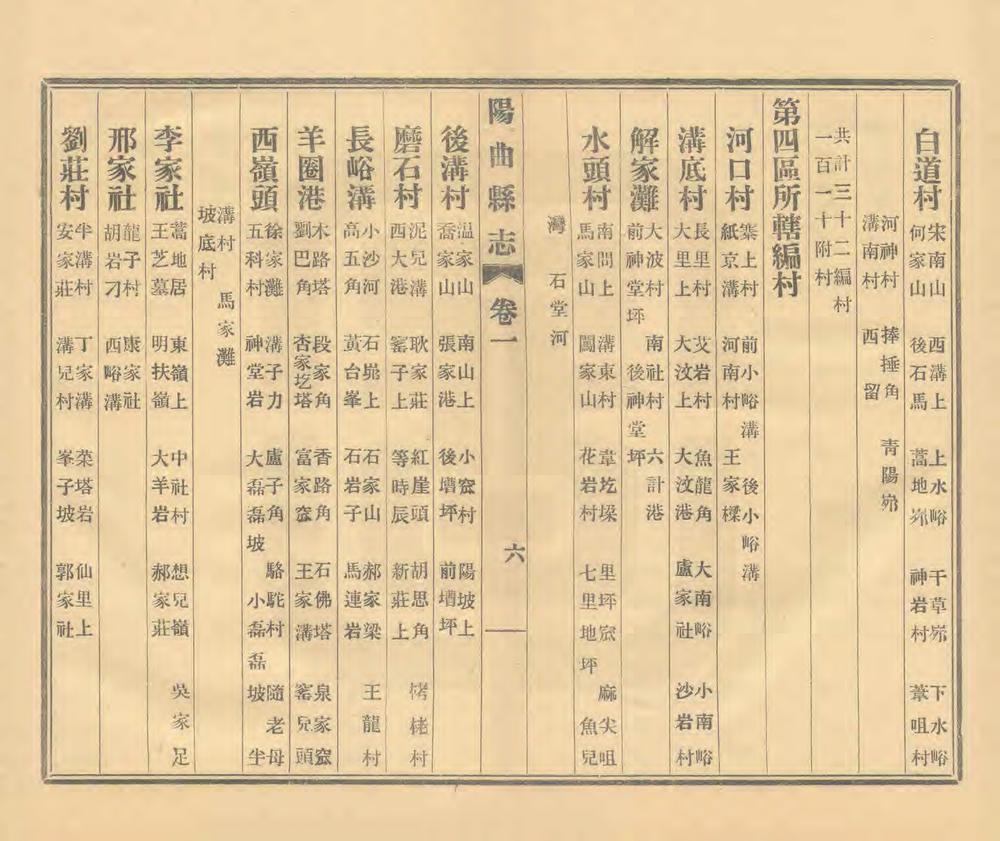 白道村　宋南山　西溝上　上水峪　干草峁　下水峪
何家山　後石馬　蒿地峁　神岩村　葦咀村
河神村　捧捶角　青陽峁
溝南村　西留
共計三十二編村
一百一十附村
第四區所轄編村
河口村　寨上村　前小峪溝　後小峪溝
紙京溝　河南村　王家樑
溝底村　長里村　艾岩村　魚龍角　大南峪　小南峪
大里上　大汶上　大汶港　盧家社　沙岩村
解家灘　大波村　南社村　六計港
前神堂坪　後神堂坪
水頭村　南問上　溝東村　韋圪垛　里坪窊　麻尖咀
馬家山　閻家山　花岩村　七里地坪　魚兒
灣　石堂河
陽曲縣志　卷一　六
後溝村　温家山　南山上　小窊村　陽坡上
喬家山　張家港　後墰坪　前墰坪
磨石村　泥兒溝　耿家莊　紅崖頭　胡思角　栳村
西大港　窰子上　等時辰　新莊上
長峪溝　小沙河　石崩上　石家山　郝家梁　王龍村
高五角　黃台峯　石岩子　馬連岩
羊圈港　木路塔　段家角　香路角　石佛塔　泉家窊
劉巴角　杏家圪塔　富家窊　王家溝　窰兒頭
西嶺頭　徐家灘　溝子力　盧子角　駱駝村　隨老母
五科村　神堂岩　大磊磊坡　小磊磊坡　半
溝村　馬家灘
坡底村
李家社　蒿地居　東嶺上　中社村　想兒嶺　吳家足
王芝墓　明扶嶺　大羊岩　郝家莊
邢家社　龍子村　康家社
胡岩刁　西峪溝
劉莊村　半溝村　丁家溝　菜塔岩　仙里上
安家莊　溝兒村　峯子坡　郭家社